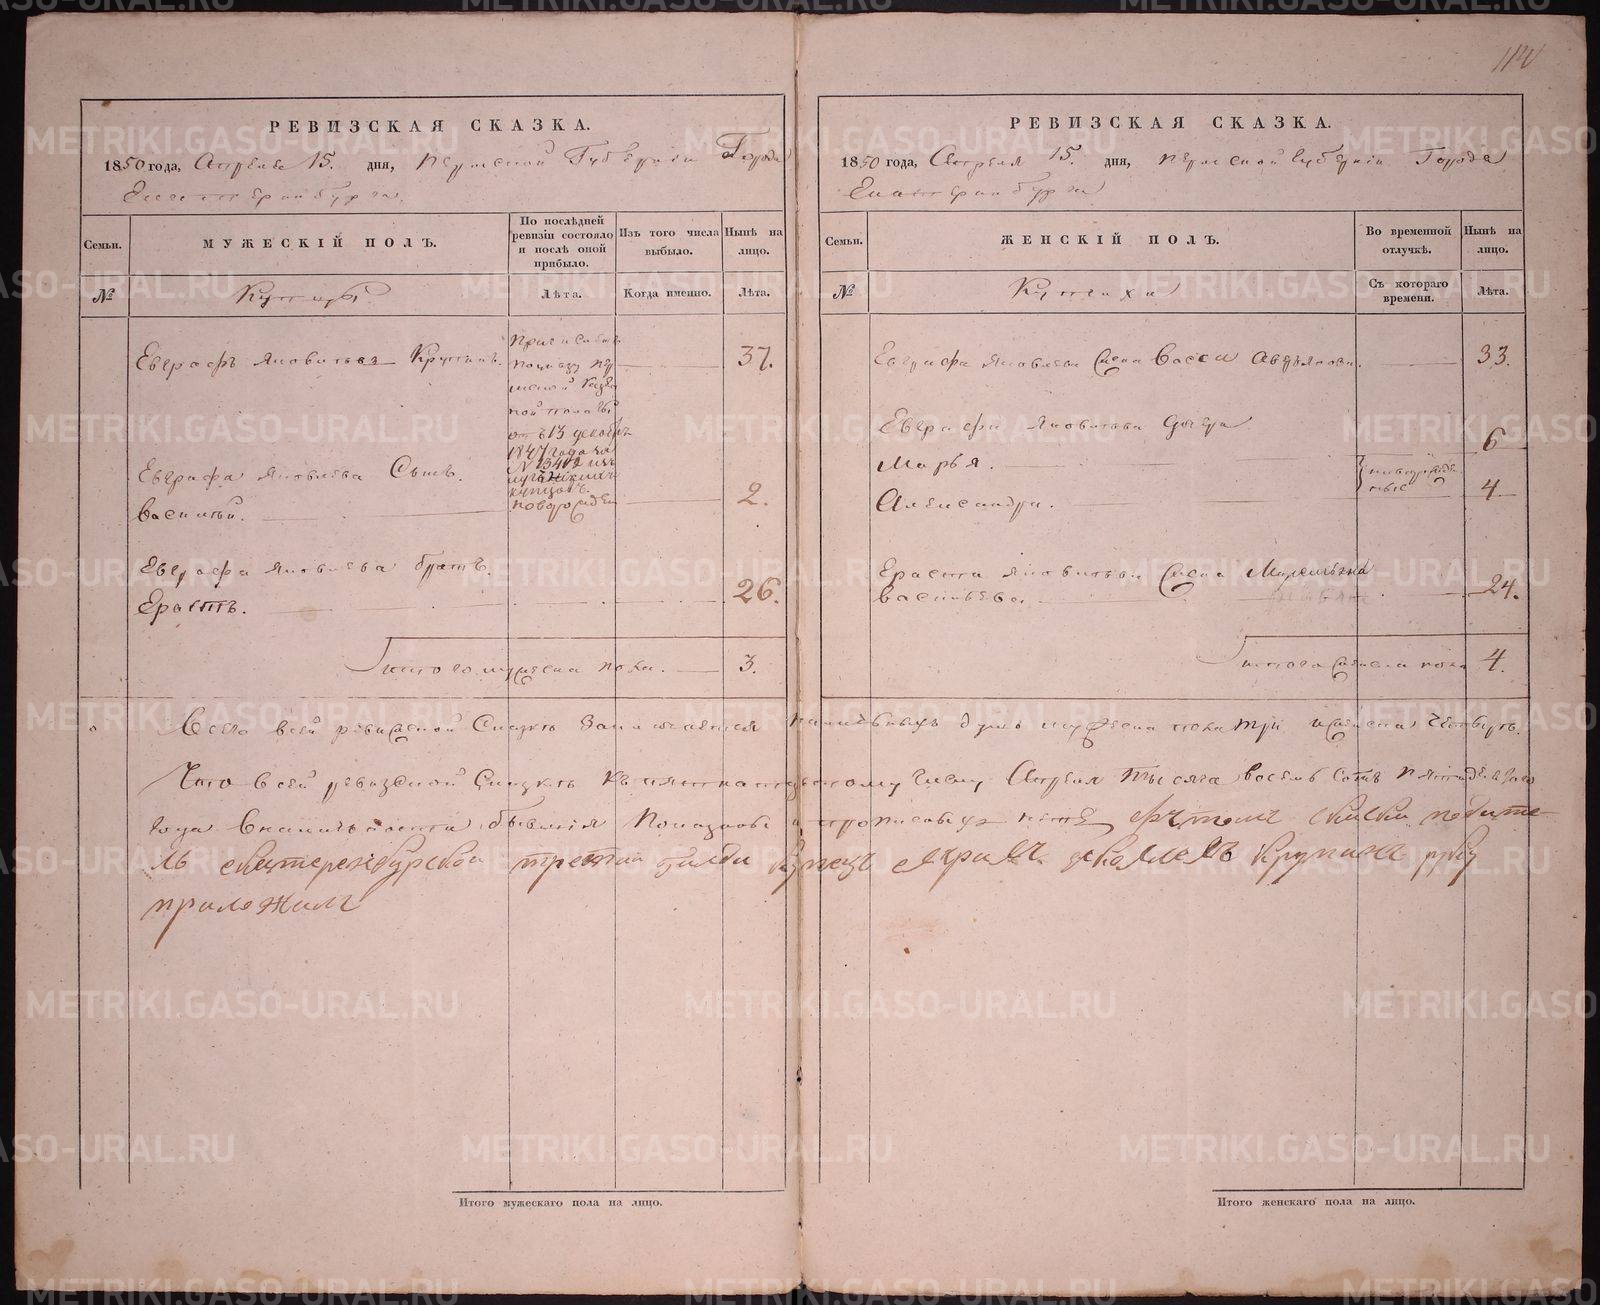 114
РЕВИЗСКАЯ СКАЗКА.
1850 года, Апреля 15. дня, Пермской Губернии Города
Екатеринбурга.
Семьи.
МУЖЕСКІЙ ПОЛЪ.
По послѣдней
ревизіи состояло
и послѣ оной
прибыло.
Изъ того числа
выбыло.
Нынѣ на
лицо.
№
Купцы
Лѣта.
Когда именно.
Лѣта.
Евграфъ Яковлевъ Крупинъ.
Причисленъ
по указу Пер
мской Казен
ной палаты
отъ 13 декабря
1847 года за
N 13412 изъ
купцовъ.
37.
Евграфа Яковлева Сынъ.
Василій.
новорожден
2.
Евграфа Яковлева братъ.
Ерастъ.
26.
Итого мужеска пола.
3.
РЕВИЗСКАЯ СКАЗКА.
1850 года, Апреля 15. дня, Пермской Губерніи Города
Екатеринбурга
Семьи.
ЖЕНСКІЙ ПОЛЪ.
Во временной
отлучкѣ.
Нынѣ на
лицо.
№
Купчихи
Съ котораго
времени.
Лѣта.
Евграфа Яковлева Жена Васса
33.
Евграфа Яковлева дочери
Марья.
6
новорожде
ные
Александра.
4
Ераста Яковлева Жена
Васильева.
24.
Итого женска пола
4.
Всего в сей ревизской Сказке Заключается наличныхъ душъ мужеска пола три и женска Четыре.
Что в сей ревизской Сказке къ пятнатцатому числу Апреля тысяча восемь сотъ пятидесятаго
года в наличности бывшія показаны и прописных нетъ, в чемъ скаски подате
ль екатеренбурской третий гилди купецъ Крупинъ руку
приложилъ
Итого мужескаго пола на лицо.
Итого женскаго пола на лицо.
METRIKI.GASO-URAL.RU